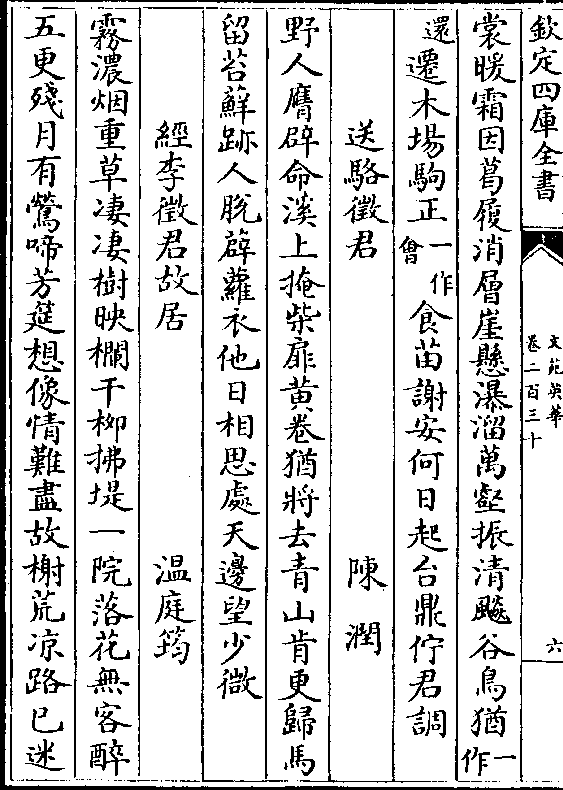 欽定四庫全書
文苑英華
卷二百三十
六
裳暖霜因葛履消層崖懸瀑溜萬壑振清飈谷鳥猶一作
還遷木場駒正一作會食苗謝安何日起台鼎佇君調
送駱徵君 陳潤
野人膺辟命溪上掩柴扉黄卷猶將去青山肯更歸馬
留苔蘚跡人脫薜蘿衣他日相思處天邊望少微
經李徵君故居 温庭筠
霧濃烟重草凄凄樹映欄干栁拂堤一院落花無客醉
五更殘月有鶯啼芳筵想像情難盡故榭荒凉路已迷